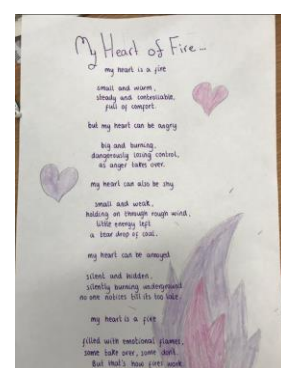 My Heart of Fire
my heart is a fire
small and warm,
steady and controllable,
full of comfort.
but my heart can be angry
big and burning,
dangerously losing control,
as anger takes over.
my heart can also be shy
small and weak,
holding on through rough wind,
little energy left
a tear drop of coal.
my heart can be annoyed
silent and hidden,
silently burning underground
no one notices till its too late.
my heart is a fire
filled with emotional flames,
some take over, some dont.
But that's how fires work.